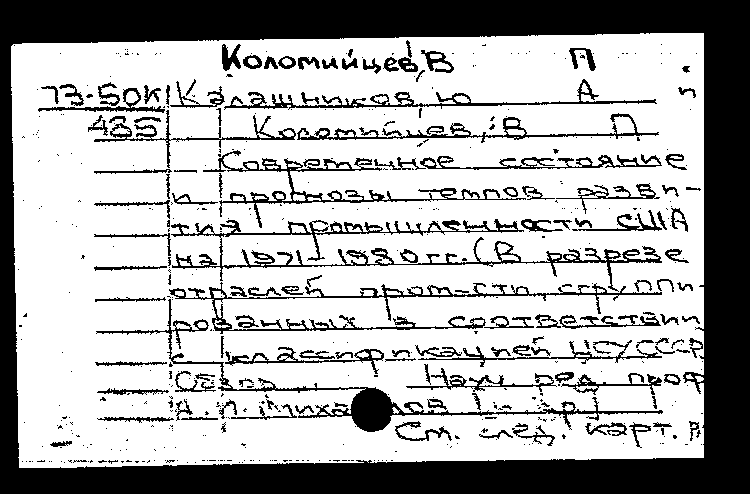 Коломийцев, В П
73-50К Калашников, Ю А и
435 Коломийцев, В П
Современное состояние
и прогнозы темпов разви-
тия промышленности США
на 1971-1980 гг. (В разрезе
отраслей пром-сти, сгруппи-
рованных в соответствии
с классификацией ЦСУ СССР
Обзор... Науч. ред. проф
А. П. Михайлов [и др]
См. след. карт.